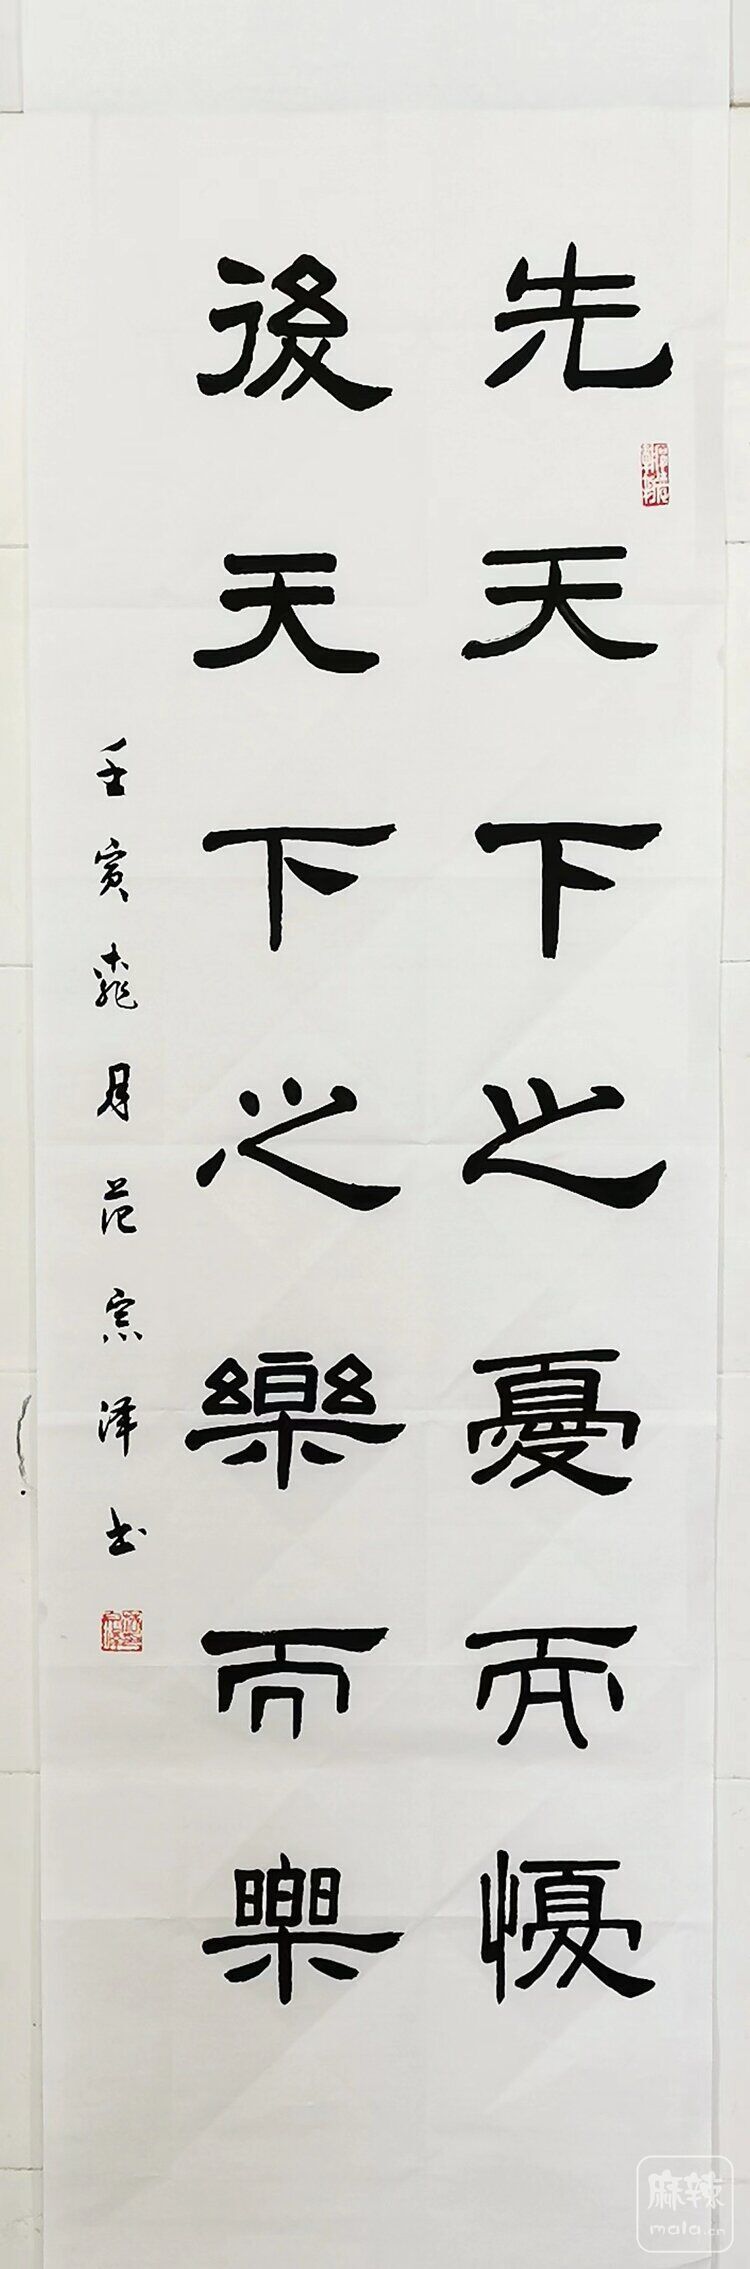 先天下之憂而憂
後天下之樂而樂
壬寅桃月范宗泽书
麻辣
mala.cn